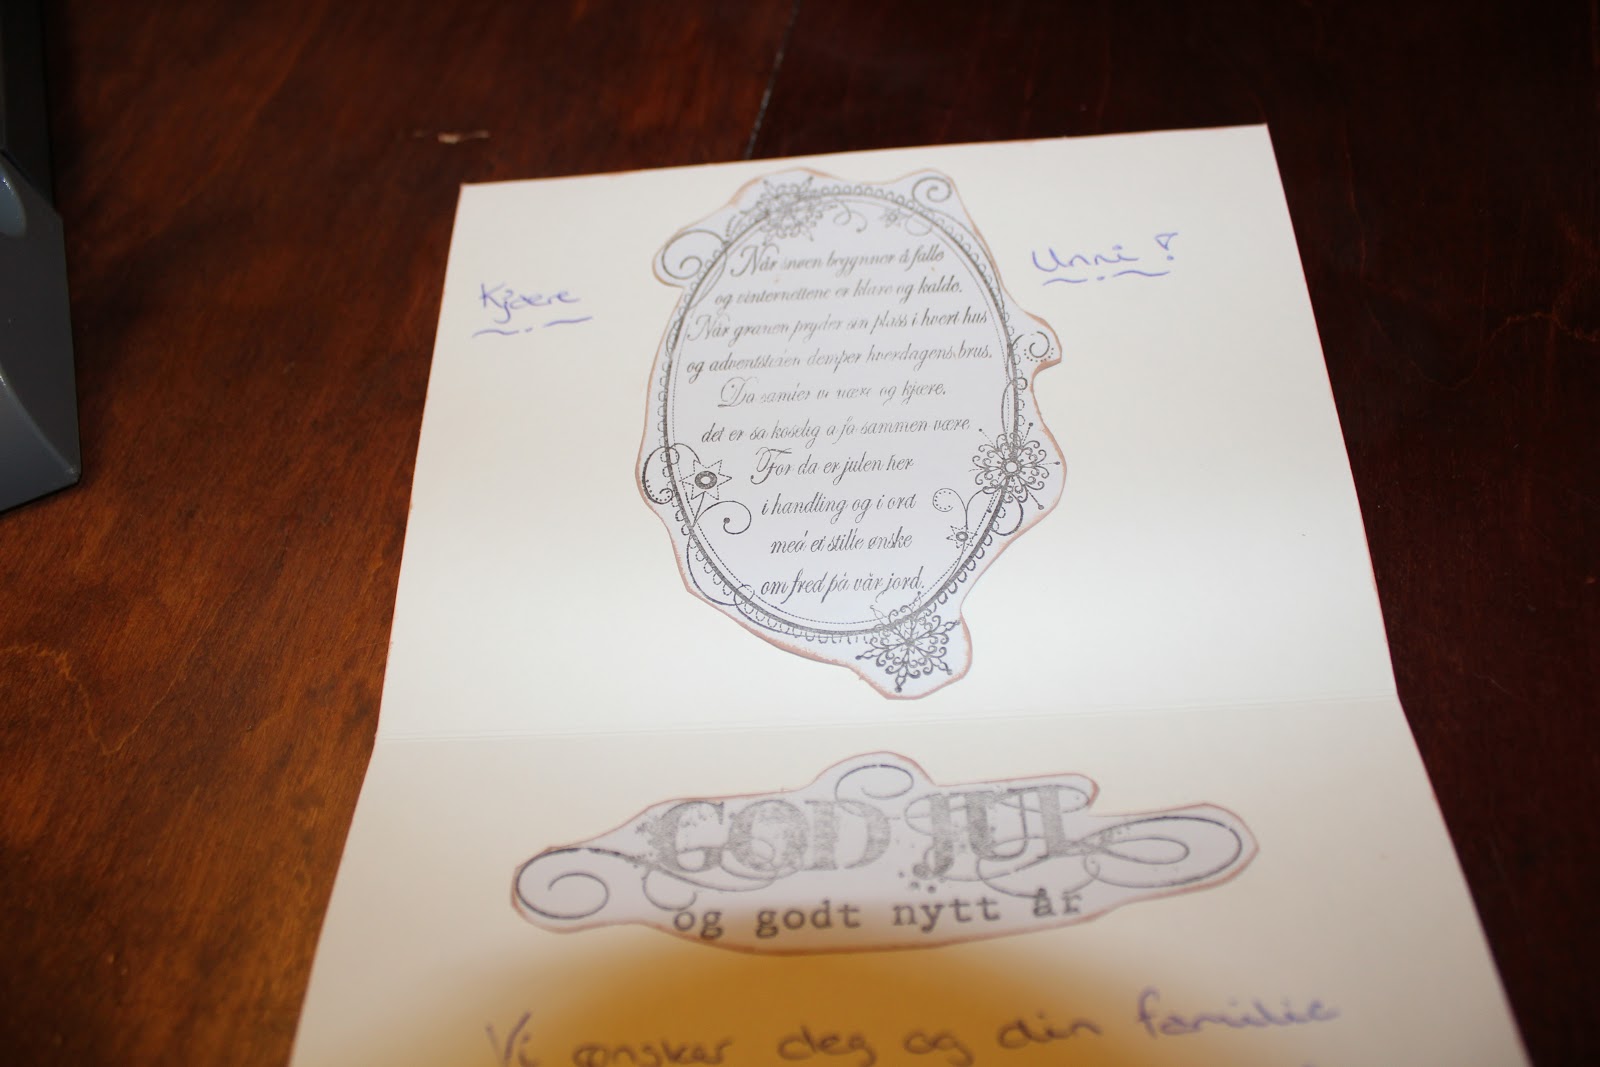 Kjære Unni!
Når snøen begynner å falle
og vinternettene er klare og kalde.
Når granen pryder sin plass i hvert hus
og adventstiden demper hverdagens brus.
Da samles vi nære og kjære,
det er så koselig å få sammen være
For da er julen her
i handling og i ord
med et stille ønske
om fred på vår jord.
GOD JUL
og godt nytt år
Vi ønsker deg og din familie